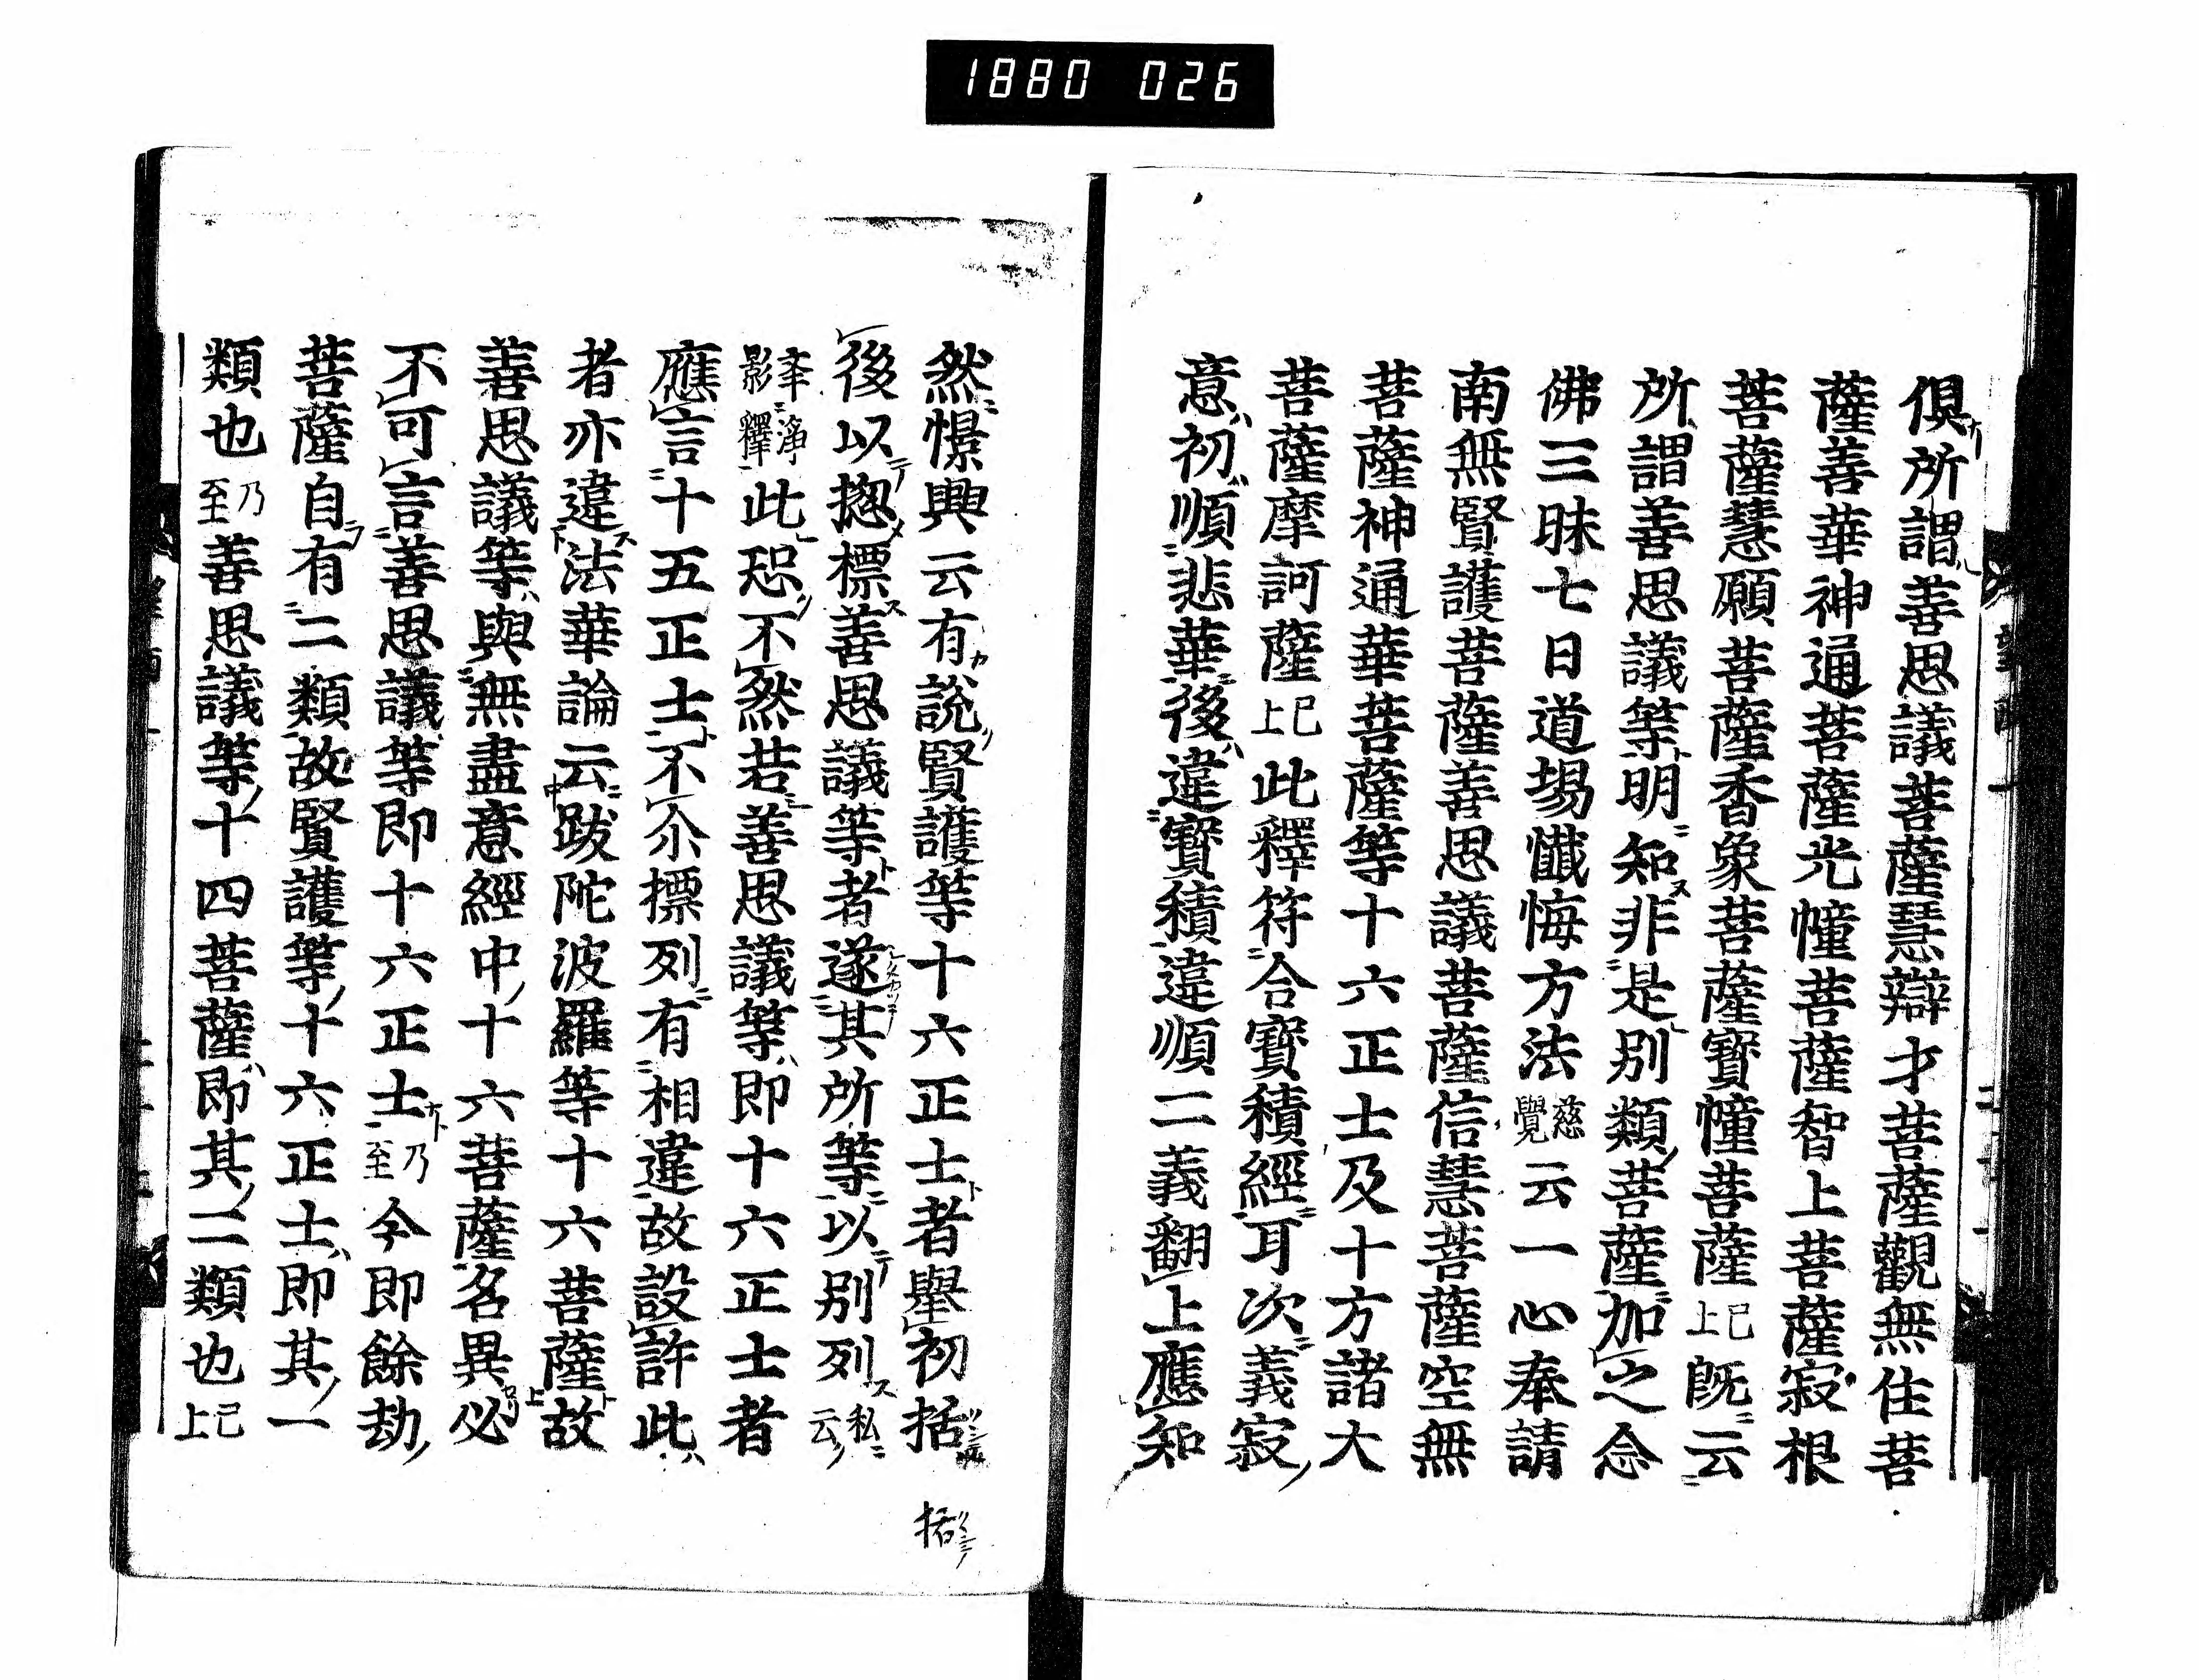 1880 026
俱所謂善思議菩薩慧辯才菩薩觀無住菩
薩善華神通菩薩光幢菩薩智上菩薩寂根
菩薩慧願菩薩香象菩薩寶幢菩薩已上既云
所謂善思議等明知非是別類菩薩加之念
佛三昧七日道場懺悔方法慈覺云一心奉請
南無賢護菩薩善思議菩薩信慧菩薩空無
菩薩神通華菩薩等十六正士及十方諸大
菩薩摩訶薩已上此釋符合寶積經耳次義寂
意初順悲華後違寶積違順二義翻上應知
然憬興云有說賢護等十六正士者舉初括
後以揔標善思議等者遂其所等以別列私云
淨影釋此恐不然若善思議等即十六正士者
應言十五正士不尒標列有相違故設許此
者亦違法華論云跋陀波羅等十六菩薩故
善思議等與無盡意經中十六菩薩名異必
不可言善思議等即十六正士乃至今即餘劫
菩薩自有二類故賢護等十六正士即其一
類也乃至善思議等十四菩薩即其二類也已上
括